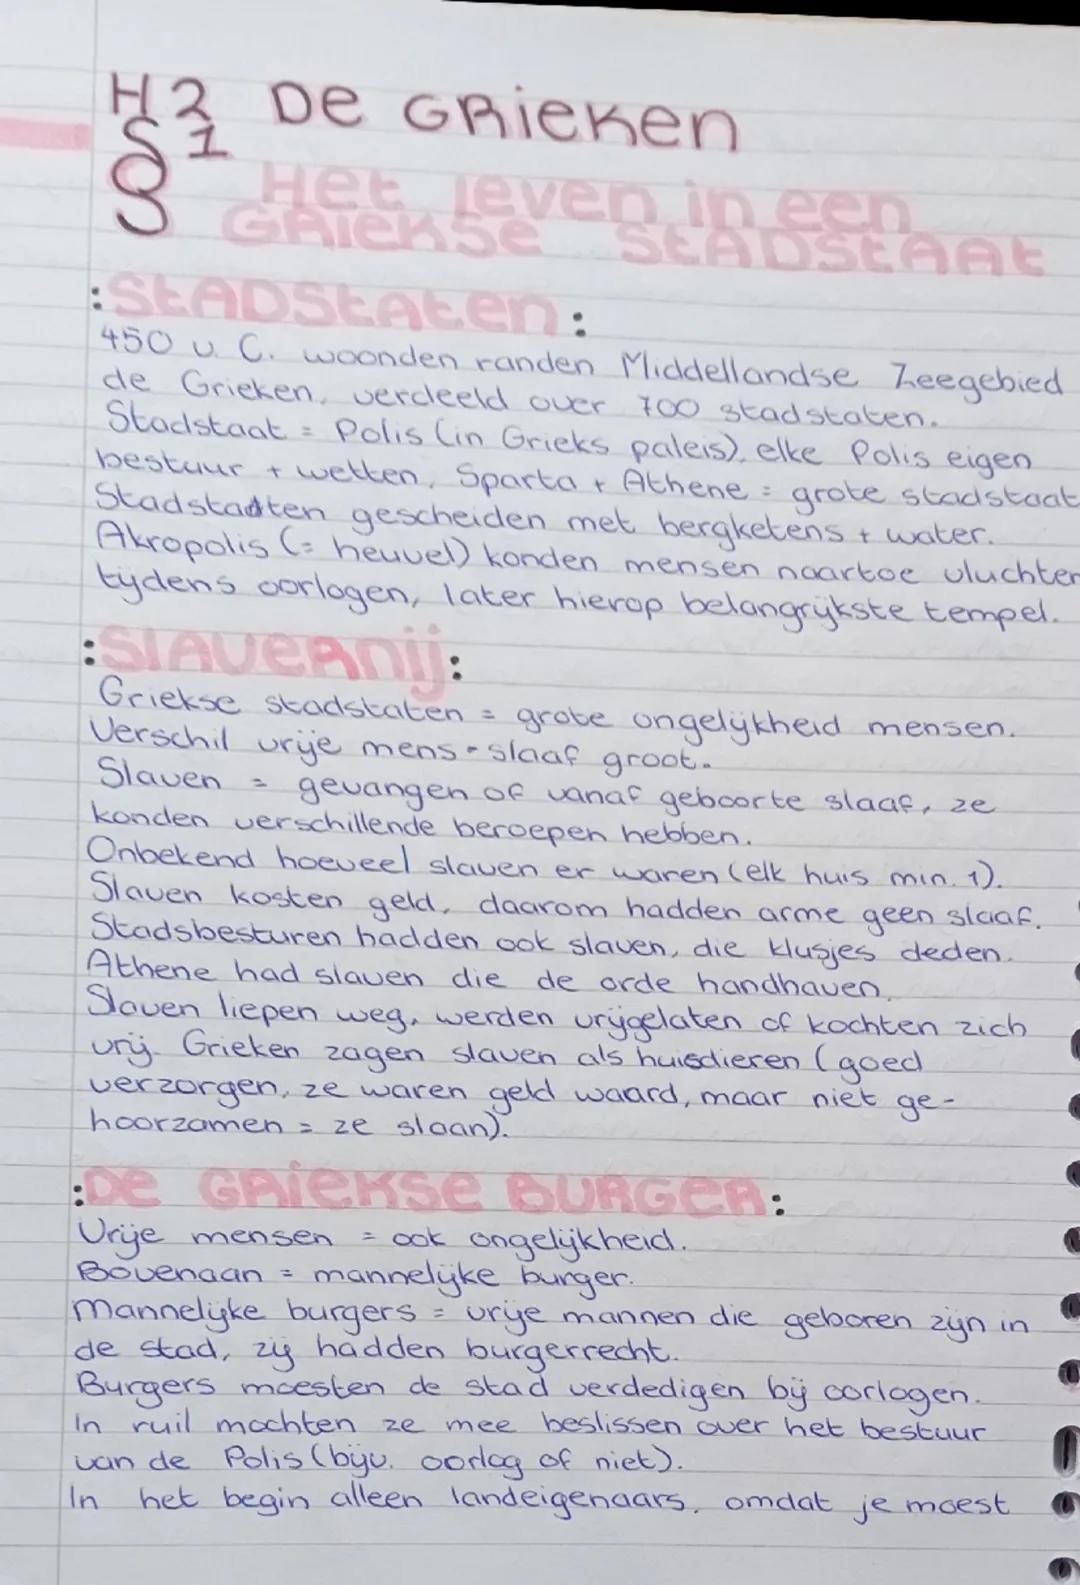 H2 De Grieken
§1
Het leven in een
Griekse stadstaat
:Stadstaten:
450 v. C. woonden randen Middellandse Zeegebied
de Grieken, verdeeld over 700 stadstaten.
Stadstaat = Polis (in Grieks paleis), elke Polis eigen
bestuur + wetten, Sparta + Athene = grote stadstaat
Stadstaten gescheiden met bergketens + water.
Akropolis (= heuvel) konden mensen naartoe vluchten
tijdens oorlogen, later hierop belangrijkste tempel.
:Slavernij:
Griekse stadstaten = grote ongelijkheid mensen.
Verschil vrije mens - slaaf groot.
Slaven = gevangen of vanaf geboorte slaaf, ze
konden verschillende beroepen hebben.
Onbekend hoeveel slaven er waren (elk huis min. 1).
Slaven kosten geld, daarom hadden arme geen slaaf.
Stadsbesturen hadden ook slaven, die klusjes deden.
Athene had slaven die de orde handhaven.
Slaven liepen weg, werden vrijgelaten of kochten zich
vrij. Grieken zagen slaven als huisdieren (goed
verzorgen, ze waren geld waard, maar niet ge-
hoorzamen = ze slaan).
:De Griekse burger:
Vrije mensen = ook ongelijkheid.
Bovenaan = mannelijke burger.
Mannelijke burgers = vrije mannen die geboren zijn in
de stad, zij hadden burgerrecht.
Burgers moesten de stad verdedigen bij oorlogen.
In ruil mochten ze mee beslissen over het bestuur
van de Polis (bijv. oorlog of niet).
In het begin alleen landeigenaars, omdat je moest